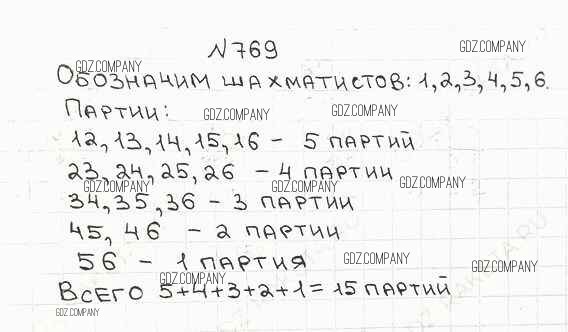 №769
GDZ.COMPANY
GDZ.COMPANY
Обозначим шахматистов: 1,2,3,4,5,6.
Партии:
GDZ.COMPANY
GDZ.COMPANY
12,13,14,15,16 - 5 партий
23,24,25,26 - 4 партии
GDZ.COMPANY
GDZ.COMPANY
GDZ.COMPANY
34,35,36 - 3 партии
45, 46 - 2 партии
56 - 1 партия
GDZ.COMPANY
GDZ.COMPANY
GDZ.COMPANY
Всего 5+4+3+2+1=15 партий
GDZ.COMPANY